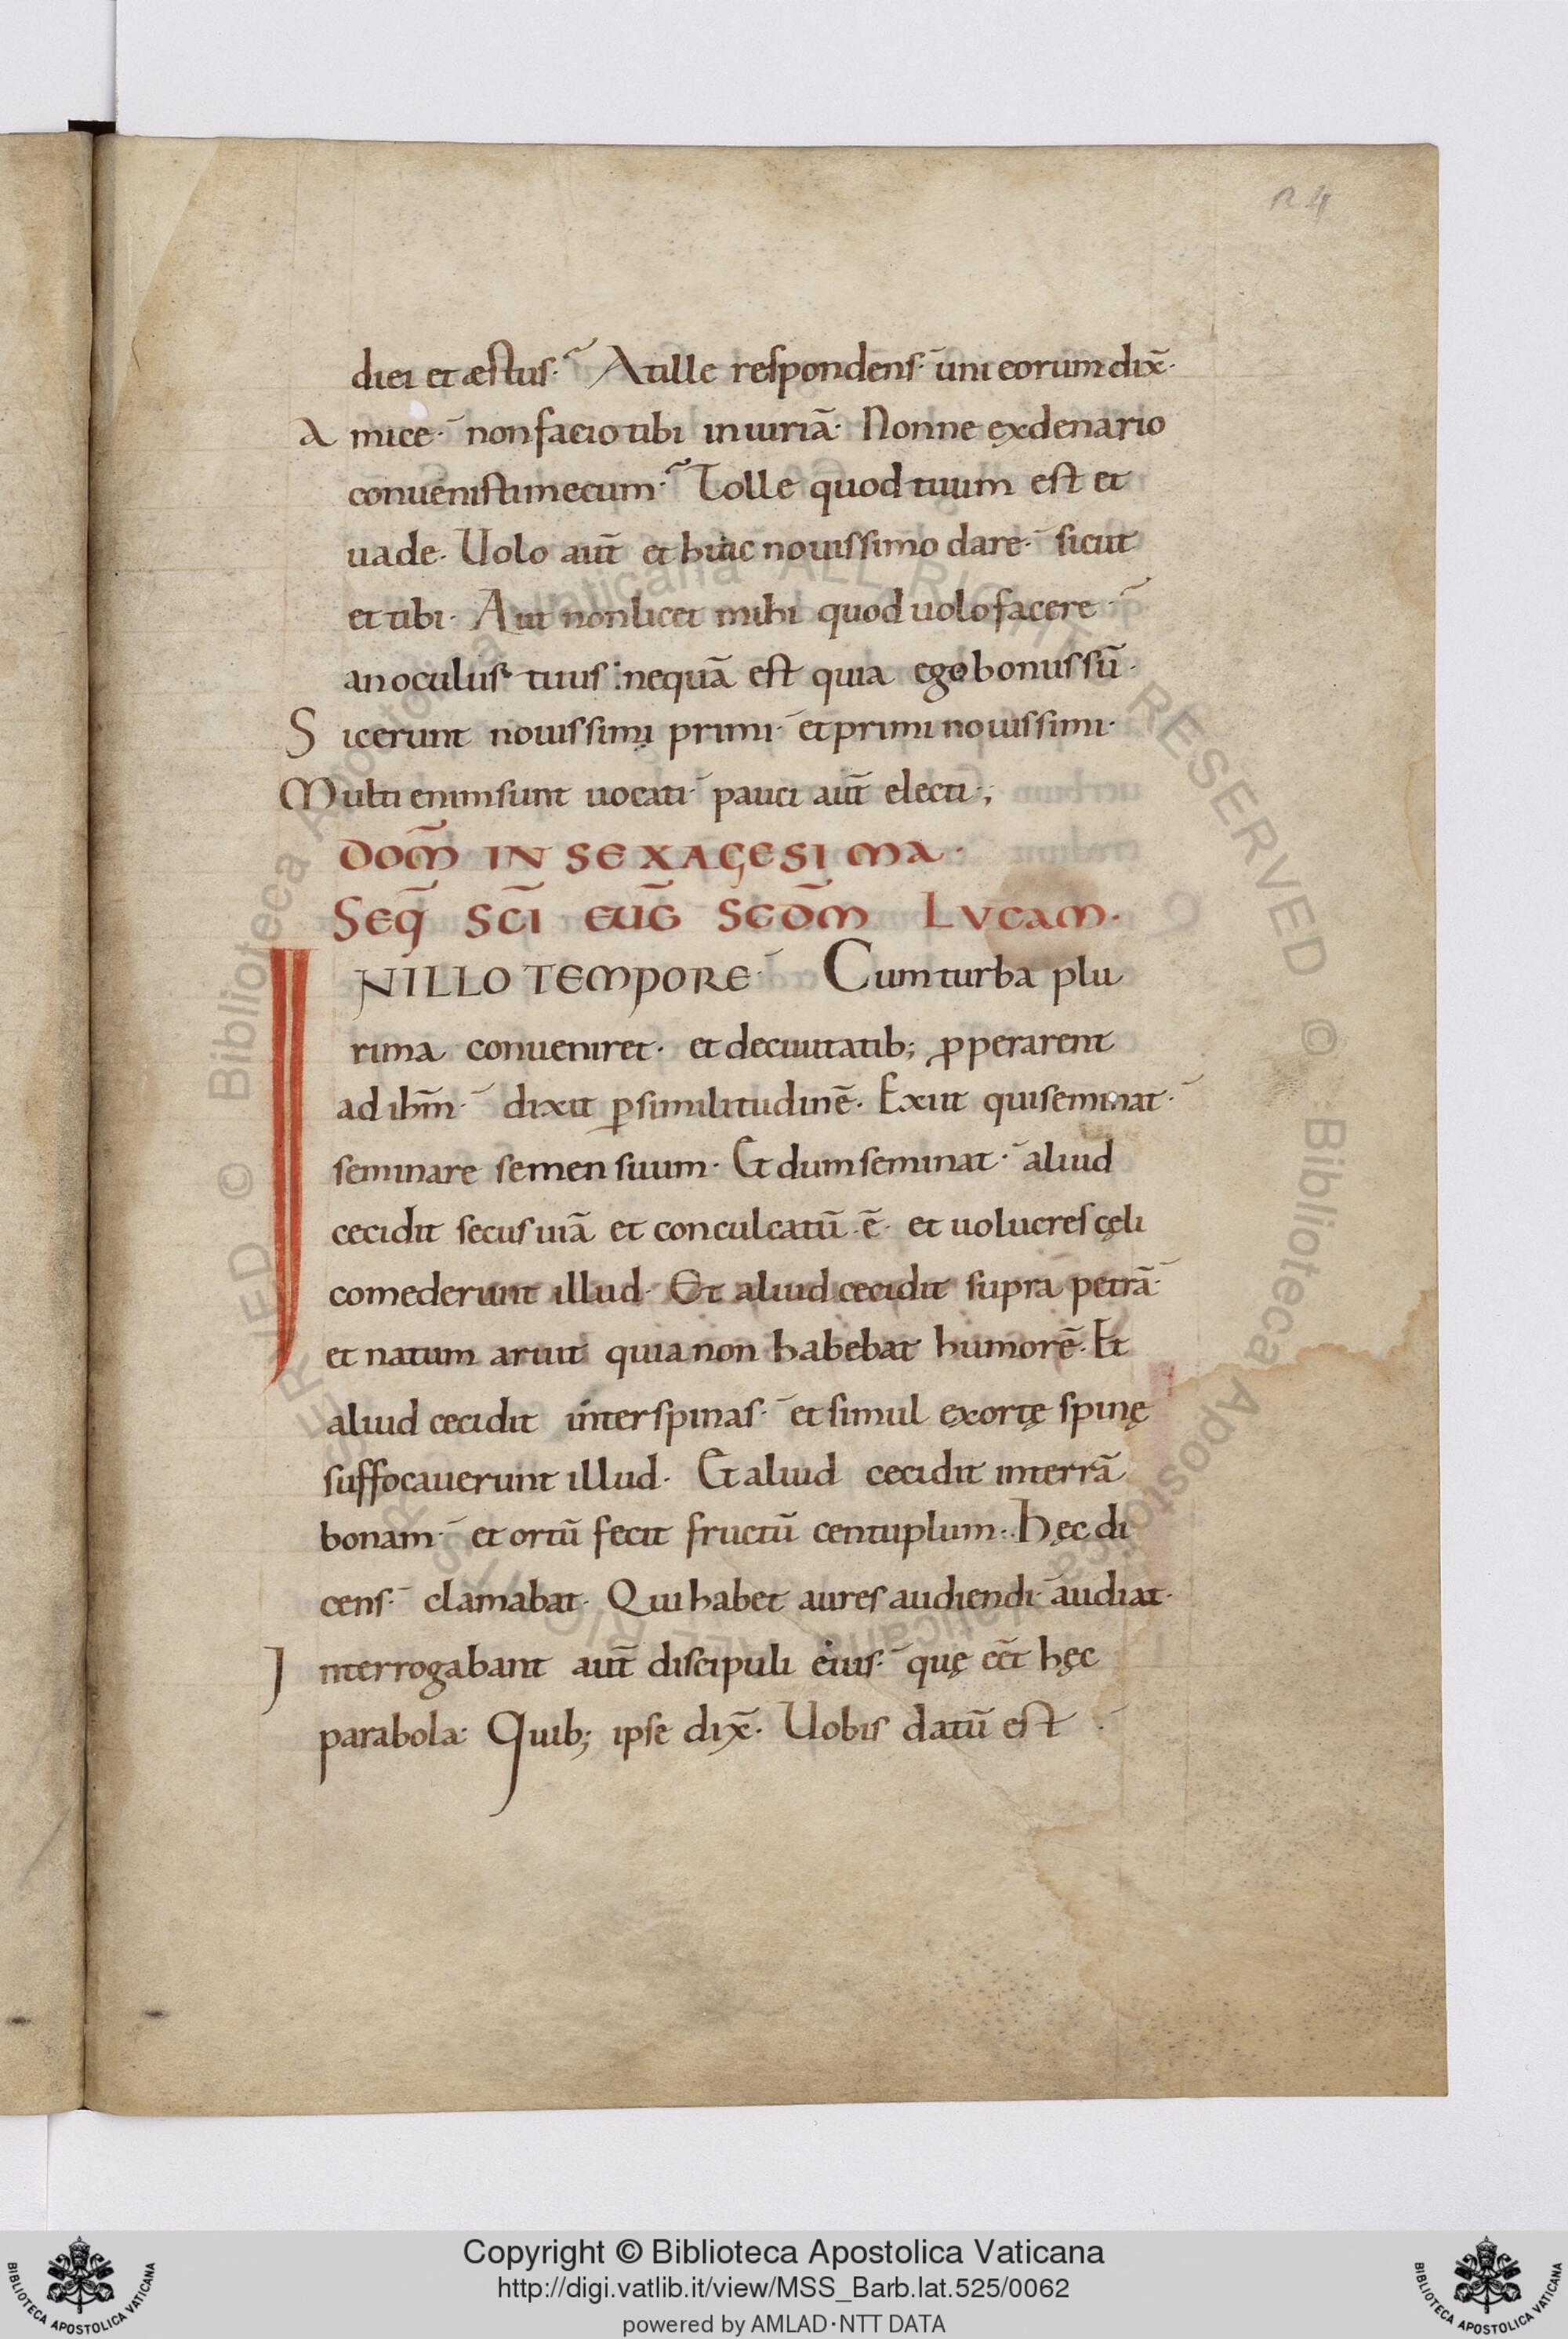 24
diei et æstus· At ille respondens· uni eorum dix̄·
Amice· non facio tibi iniuriā· Nonne ex denario
conuenisti mecum· Tolle quod tuum est et
uade· Uolo aut̄ et huic nouissimo dare· sicut
et tibi· Aut non licet mihi quod uolo facere·
an oculus tuus nequā est quia ego bonus sū·
Sic erunt nouissimi primi· et primi nouissimi·
Multi enim sunt uocati· pauci aut̄ electi·,
DOM̄ IN SEXAGESIMA·
SEQ̄ SC̄I EUḠ SCD̄M LVCAM·
IN ILLO TEMPORE· Cum turba plu
rima conueniret· et de ciuitatib; ꝓperarent
ad ih̄m· dixit ꝑ similitudinē· Exiit qui seminat·
seminare semen suum· Et dum seminat· aliud
cecidit secus uiā et conculcatū ·ē· et uolucres cęli
comederunt illud· Et aliud cecidit supra petrā·
et natum aruit quia non habebat humorē· Et
aliud cecidit inter spinas· et simul exortę spinę
suffocauerunt illud· Et aliud cecidit in terrā
bonam· et ortū fecit fructū centuplum· Hęc di
cens· clamabat· Qui habet aures audiendi· audiat·
Interrogabant aut̄ discipuli eius· quę eēt hęc
parabola· Quib; ipse dix̄· Uobis datū est
© Biblioteca Apostolica Vaticana ALL RIGHTS RESERVED © Biblioteca Apostolica Vaticana ALL RIGHTS RESERVED
Copyright © Biblioteca Apostolica Vaticana
http://digi.vatlib.it/view/MSS_Barb.lat.525/0062
powered by AMLAD·NTT DATA
BIBLIOTECA APOSTOLICA VATICANA
BIBLIOTECA APOSTOLICA VATICANA